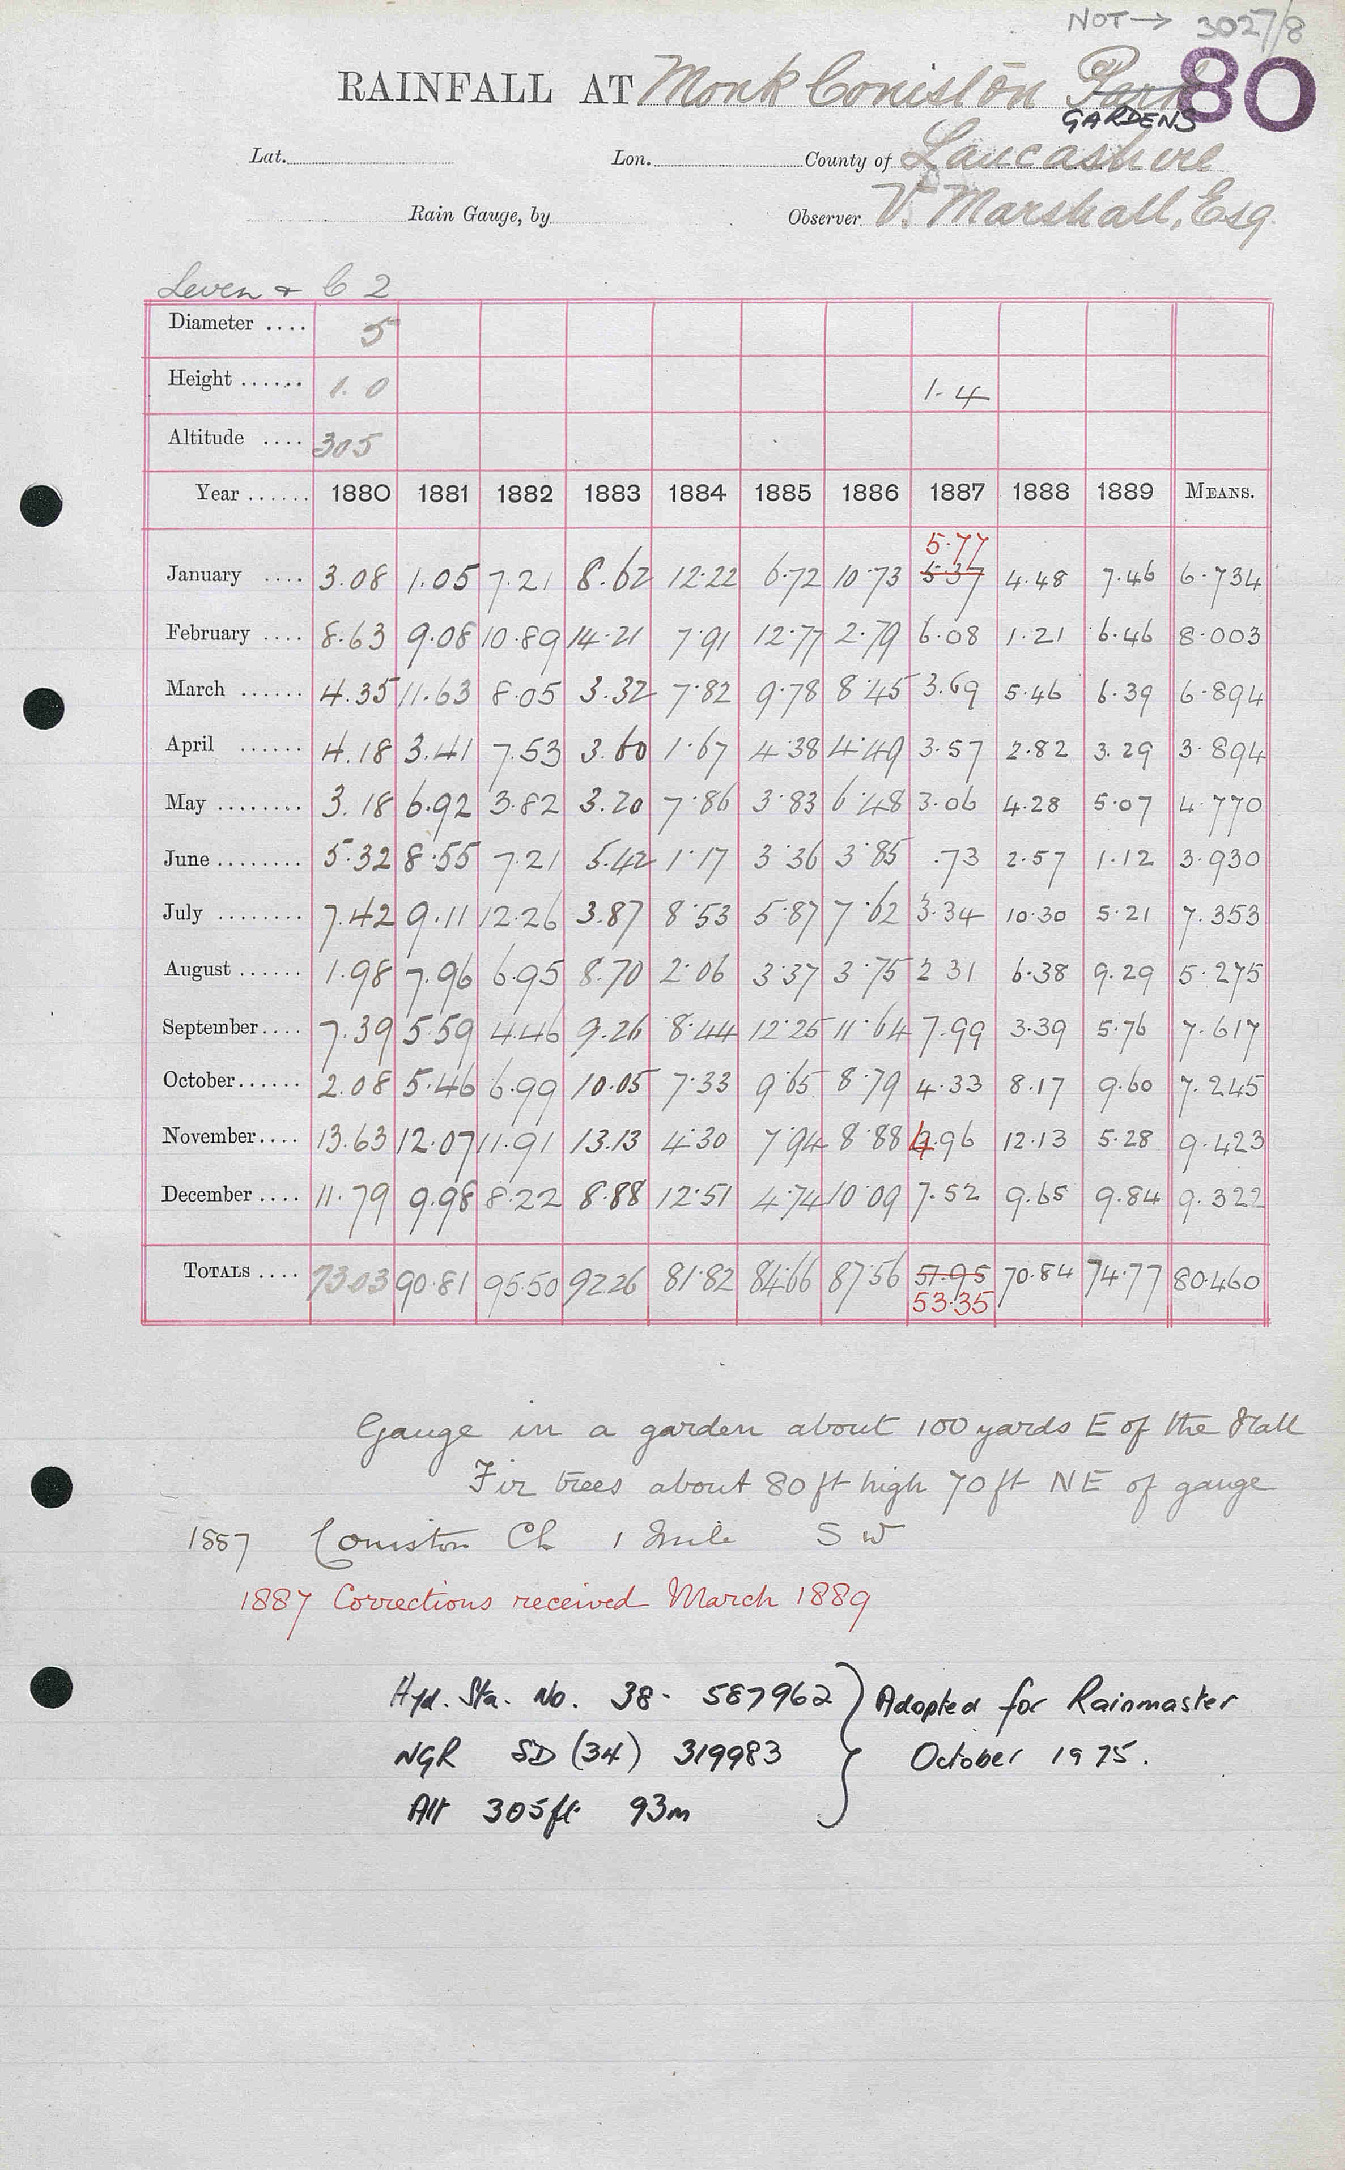 NOT → 3027/8
RAINFALL AT Monk Coniston Park 80
GARDENS
Lat. Lon. County of Lancashire
Rain Gauge, by Observer V. Marshall, Esq.
Leven & C 2
Diameter .... 5
Height ...... 1.0 1.4
Altitude .... 305
Year ...... 1880 1881 1882 1883 1884 1885 1886 1887 1888 1889 MEANS.
5.77
January .... 3.08 1.05 7.21 8.62 12.22 6.72 10.73 5.37 4.48 7.46 6.734
February .... 8.63 9.08 10.89 14.21 7.91 12.77 2.79 6.08 1.21 6.46 8.003
March ...... 4.35 11.63 8.05 3.32 7.82 9.78 8.45 3.69 5.46 6.39 6.894
April ...... 4.18 3.41 7.53 3.60 1.67 4.38 4.49 3.57 2.82 3.29 3.894
May ........ 3.18 6.92 3.82 3.20 7.86 3.83 6.48 3.06 4.28 5.07 4.770
June ........ 5.32 8.55 7.21 5.42 1.17 3.36 3.85 .73 2.57 1.12 3.930
July ........ 7.42 9.11 12.26 3.87 8.53 5.87 7.62 3.34 10.30 5.21 7.353
August ...... 1.98 7.96 6.95 8.70 2.06 3.37 3.75 2.31 6.38 9.29 5.275
September .... 7.39 5.59 4.46 9.26 8.44 12.25 11.64 7.99 3.39 5.76 7.617
October ...... 2.08 5.46 6.99 10.05 7.33 9.65 8.79 4.33 8.17 9.60 7.245
November .... 13.63 12.07 11.91 13.13 4.30 7.94 8.88 4.96 12.13 5.28 9.423
December .... 11.79 9.98 8.22 8.88 12.51 4.74 10.09 7.52 9.65 9.84 9.322
TOTALS .... 73.03 90.81 95.50 92.26 81.82 84.66 87.56 57.95 70.84 74.77 80.460
53.35
Gauge in a garden about 100 yards E of the Hall
Fir trees about 80 ft high 70 ft NE of gauge
1887 Coniston Ch 1 Mile SW
1887 Corrections received March 1889
Hyd. Sta. No. 38. 587962 } Adopted for Rainmaster
NGR SD (34) 319983 October 1975.
Alt 305ft. 93m